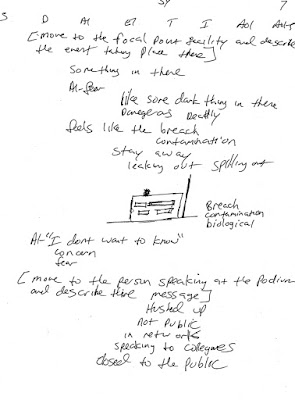 S4 7
S D AI EI T I AOL AOL/S
[move to the focal point facility and describe
the event taking place there]
Something in there
AI-fear
like some dark thing in there
Dangerous Deadly
feels like the breach
contamination
stay away
leaking out spilling out
Breach
contamination
biological
AI "I dont want to know"
concern
fear
[move to the person speaking at the podium
and describe their message]
Hushed up
not public
in network
speaking to collegues
closed to the public